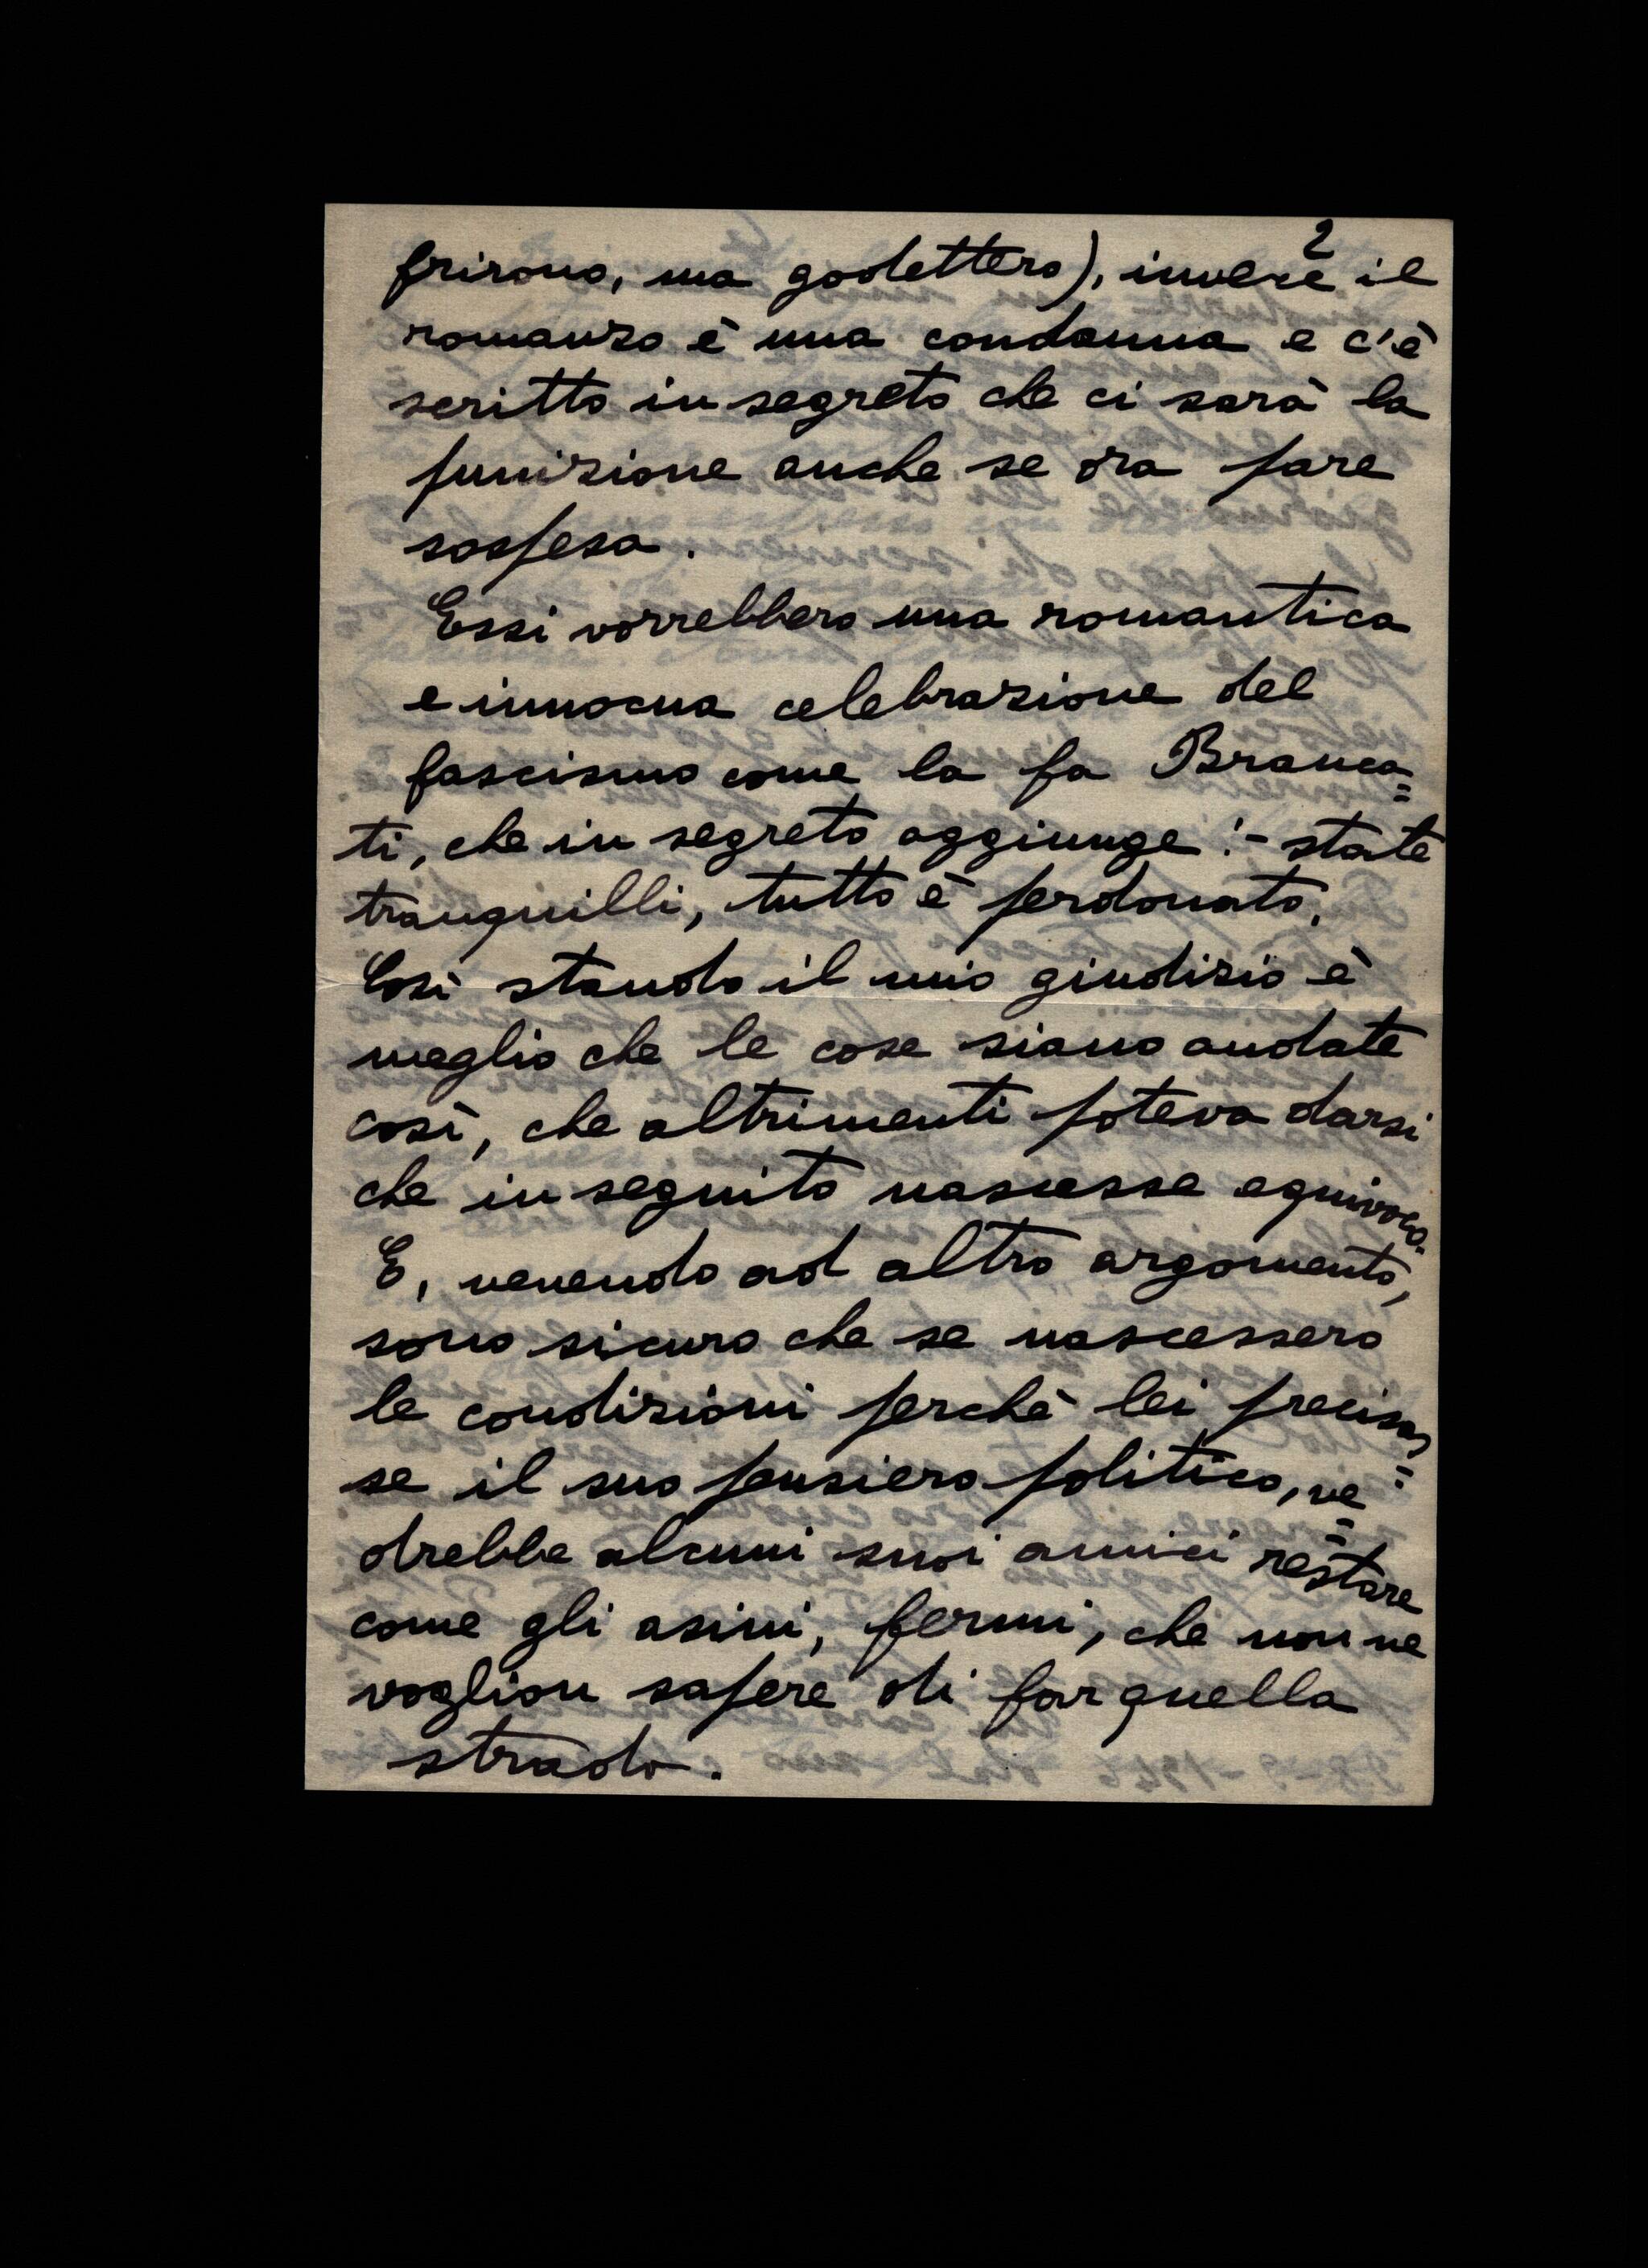 2
frirono, ma godettero), invece il
romanzo è una condanna e c'è
scritto in segreto che ci sarà la
punizione anche se ora pare
sospesa.
Essi vorrebbero una romantica
e innocua celebrazione del
fascismo come la fa Branca=
ti, che in segreto aggiunge:- state
tranquilli, tutto è perdonato.
Così stando il mio giudizio è
meglio che le cose siano andate
così, che altrimenti poteva darsi
che in seguito nascesse equivoco.
E, venendo ad altro argomento,
sono sicuro che se nascessero
le condizioni perchè lei precisas=
se il suo pensiero politico, ve=
drebbe alcuni suoi amici restare
come gli asini, fermi, che non ne
voglion sapere di far quella
strada.